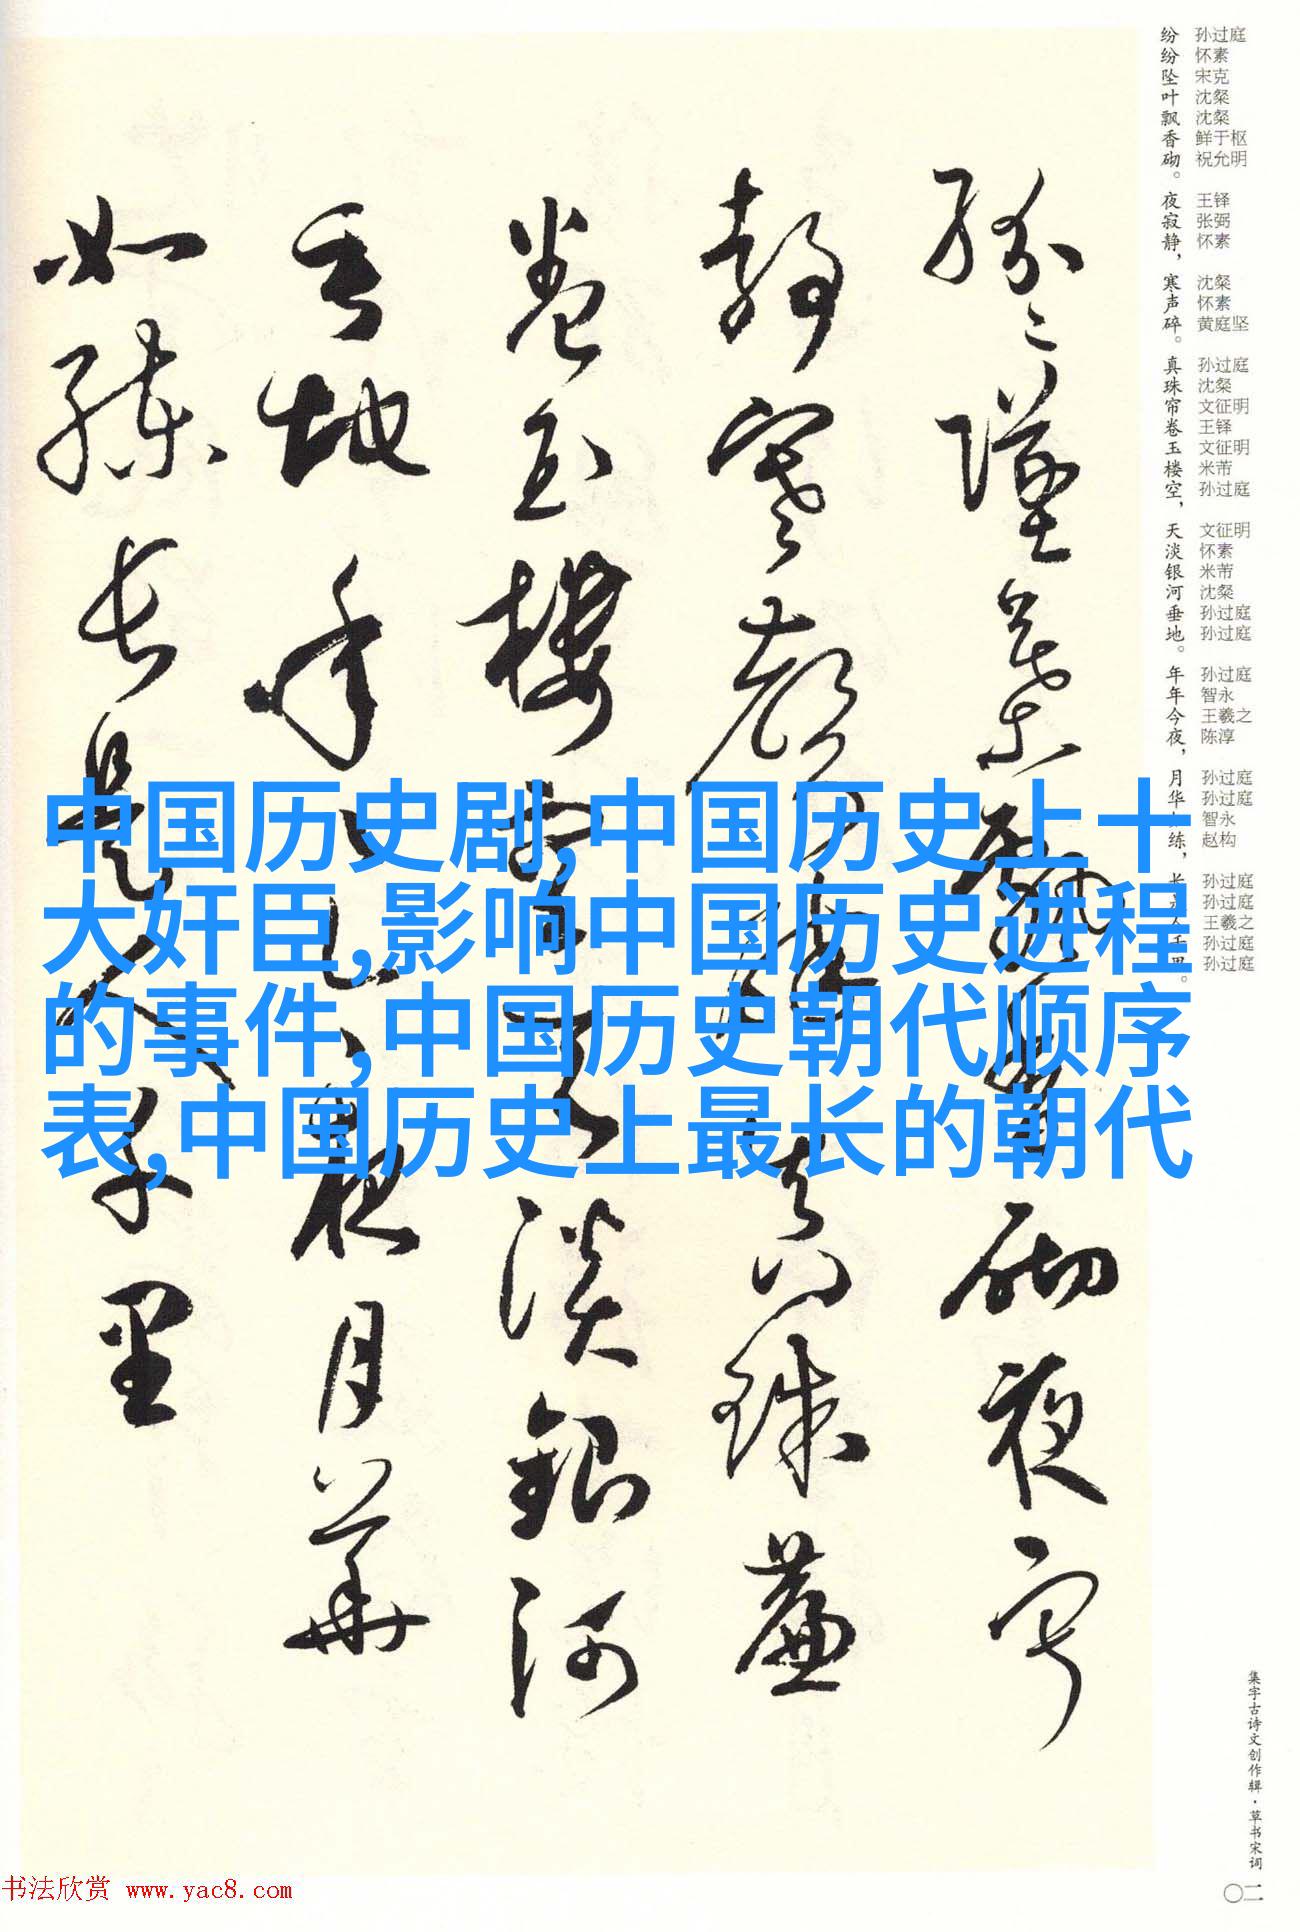 中国历史剧,中国历史上十
大奸臣,影响中国历史进程
的事件,中国历史朝代顺序
表,中国历史上最长的朝代
纷纷坠叶飘香砌。夜寂静，寒声碎。真珠帘卷玉楼空，天淡银河垂地。年年今夜，月华练，长
孙过庭
怀素
宋克
沈粲
沈粲
鲜于枢
祝允明
王铎
张弼
怀素
沈粲
怀素
黄庭坚
孙过庭
沈粲
文征明
王铎
文征明
米芾
孙过庭
文征明
怀素
米芾
沈粲
孙过庭
孙过庭
孙过庭
智永
王羲之
陈淳
孙过庭
孙过庭
智永
赵构
孙过庭
孙过庭
王羲之
孙过庭
孙过庭
紛〻墜葉飄香砌夜寂
静寒聲碎真珠簾
卷玉樓空天淡銀河
垂地年〻今夜月華
如練長是人千里
集字古诗文创作辑·草书宋词
〇二
书法欣赏 www.yac8.com